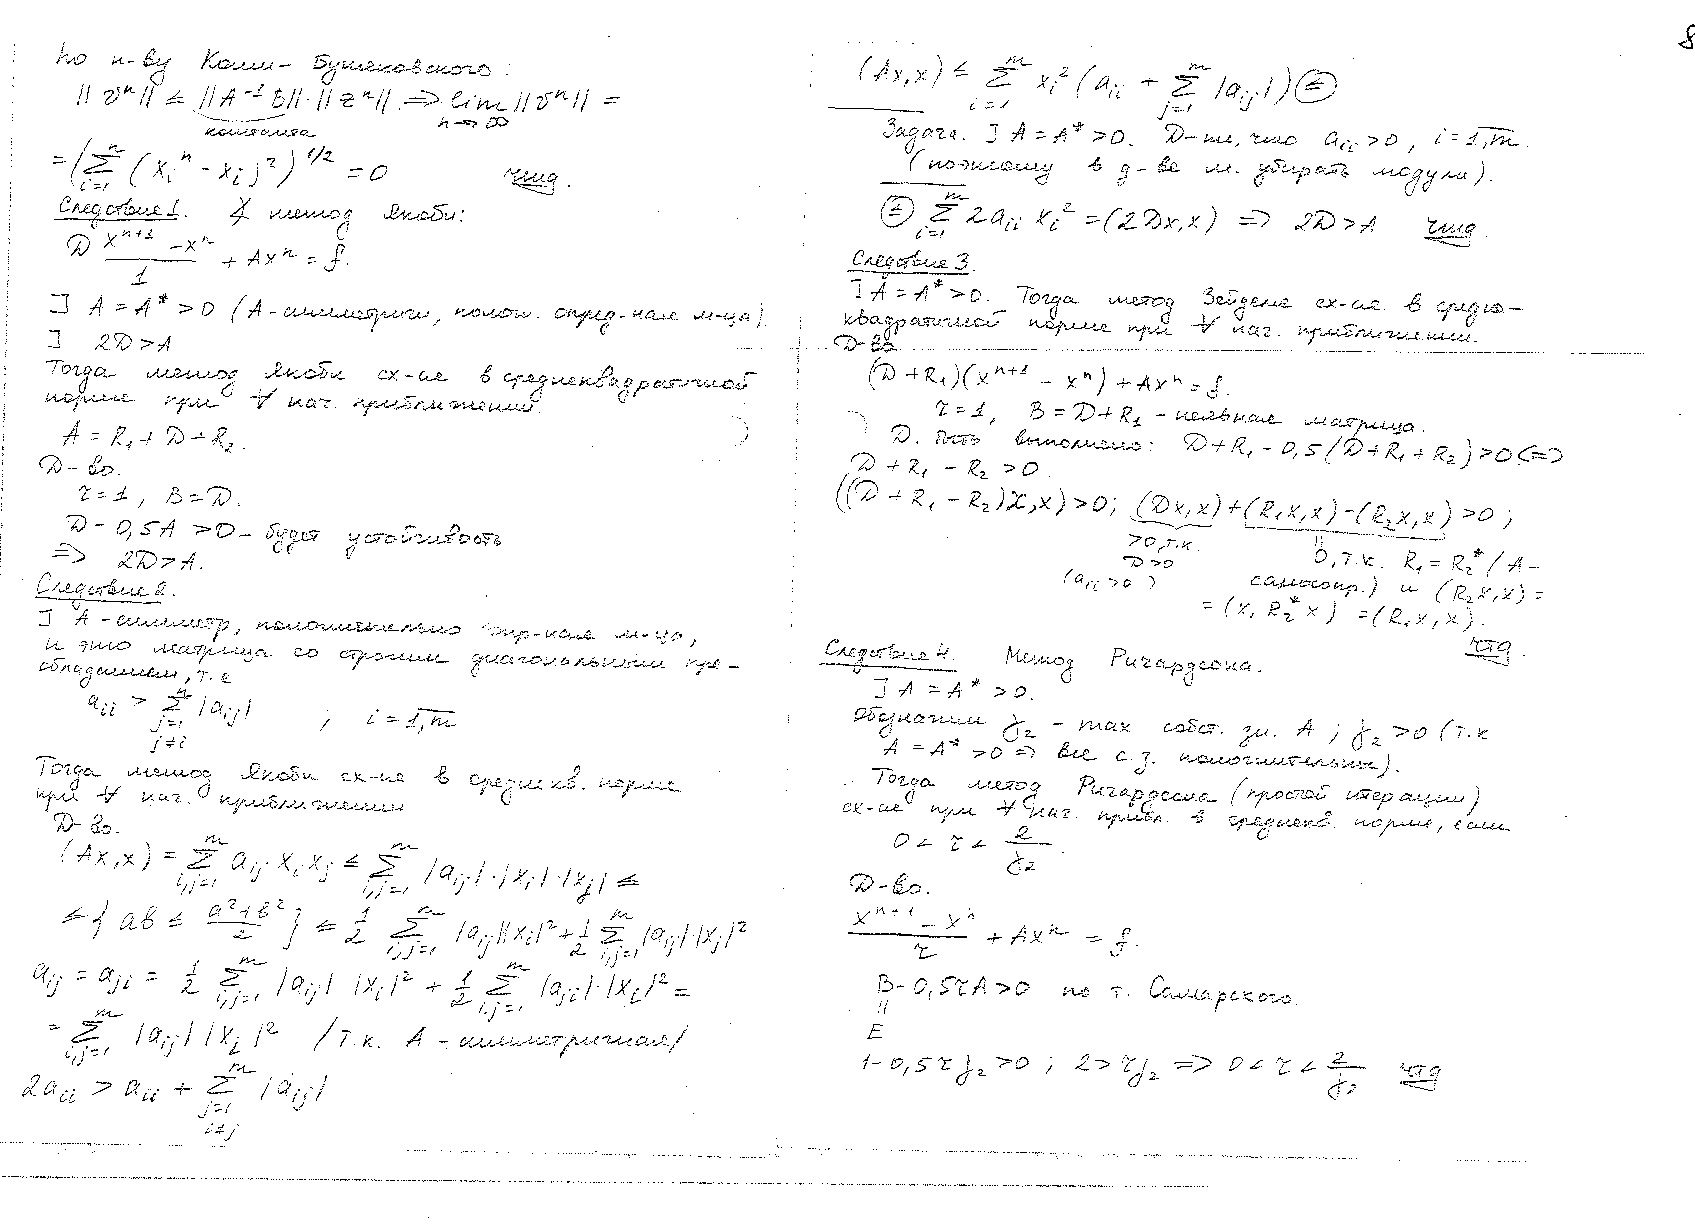 По н-ву Коши-Буняковского:
||vⁿ|| ≤ ||A⁻¹B||·||zⁿ|| ⇒ lim ||vⁿ|| =
константа n→∞
= (∑ᵢ₌₁ⁿ (xᵢⁿ - xᵢ)²)^{1/2} = 0 чтд.
Следствие 1. ∀ метод Якоби:
D (xⁿ⁺¹ - xⁿ)/1 + Axⁿ = f.
] A = A* > 0 (A-симметричн, полож. опред-ная м-ца)
] 2D > A
Тогда метод Якоби сх-ся в среднеквадратичной
норме при ∀ нач. приближении.
A = R₁ + D + R₂.
D-во.
τ = 1, B = D.
D - 0,5A > 0 - будет устойчивость
⇒ 2D > A.
Следствие 2.
] A-симметр, положительно опр-ная м-ца,
и это матрица со строгим диагональным пре-
обладанием, т.е
aᵢᵢ > ∑_{j=1, j≠i}ⁿ |aᵢⱼ| ; i = 1,m
Тогда метод Якоби сх-ся в среднекв. норме
при ∀ нач. приближении
D-во.
(Ax,x) = ∑_{i,j=1}^m aᵢⱼ xᵢ xⱼ ≤ ∑_{i,j=1}^m |aᵢⱼ|·|xᵢ|·|xⱼ| ≤
≤ { ab ≤ (a²+b²)/2 } ≤ 1/2 ∑_{i,j=1}^m |aᵢⱼ||xᵢ|² + 1/2 ∑_{i,j=1}^m |aᵢⱼ|·|xⱼ|²
aᵢⱼ = aⱼᵢ = 1/2 ∑_{i,j=1}^m |aᵢⱼ| |xᵢ|² + 1/2 ∑_{i,j=1}^m |aⱼᵢ|·|xᵢ|² =
= ∑_{i,j=1}^m |aᵢⱼ| |xᵢ|² /т.к. A - симметричная/
2aᵢᵢ > aᵢᵢ + ∑_{j=1, i≠j}^m |aᵢⱼ|
8
(Ax,x) ≤ ∑_{i=1}^m xᵢ² (aᵢᵢ + ∑_{j=1}^m |aᵢⱼ|) (=)
Задача. ] A = A* > 0. D-ть, что aᵢᵢ > 0, i = 1,m.
(поэтому в д-ве м. убирать модули).
(=) ∑_{i=1}^m 2aᵢᵢ xᵢ² = (2Dx,x) ⇒ 2D > A чтд.
Следствие 3.
] A = A* > 0. Тогда метод Зейделя сх-ся в средне-
квадратичной норме при ∀ нач. приближении.
D-во
(D + R₁)(xⁿ⁺¹ - xⁿ) + Axⁿ = f.
τ = 1, B = D + R₁ - неявная матрица.
D. быть выполнено: D + R₁ - 0,5(D + R₁ + R₂) > 0 ⇔
D + R₁ - R₂ > 0.
((D + R₁ - R₂)x,x) > 0; (Dx,x) + (R₁x,x) - (R₂x,x) > 0;
>0, т.к. D>0 (aᵢᵢ>0)
0, т.к. R₁ = R₂* /A-
самосопр.) и (R₂x,x) =
= (x, R₂*x) = (R₁x,x).
чтд.
Следствие 4. Метод Ричардсона.
] A = A* > 0.
Обозначим γ₂ - max собст. зн. A; γ₂ > 0 (т.к
A = A* > 0 ⇒ все с.з. положительны).
Тогда метод Ричардсона (простой итерации)
сх-ся при ∀ нач. прибл. в среднекв. норме, если
0 < τ < 2/γ₂.
D-во.
(xⁿ⁺¹ - xⁿ)/τ + Axⁿ = f.
B - 0,5τA > 0 по т. Самарского.
||
E
1 - 0,5τγ₂ > 0; 2 > τγ₂ ⇒ 0 < τ < 2/γ₂ чтд